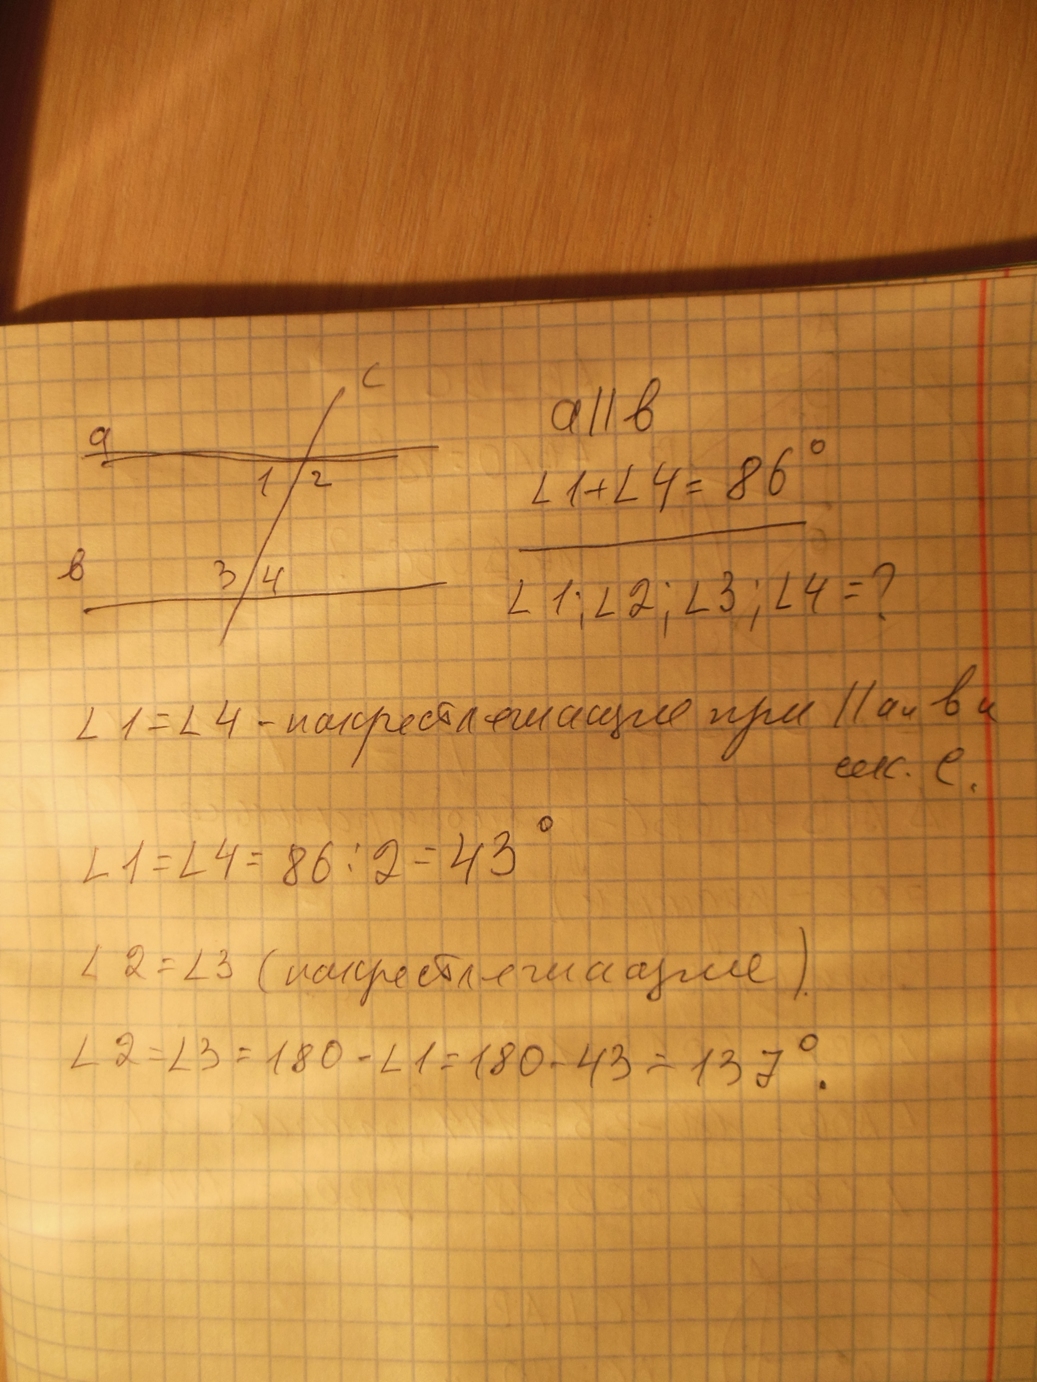 c
a
1 2
в
3 4
a || в
∠1+∠4= 86°
∠1; ∠2; ∠3; ∠4 = ?
∠1=∠4 - накрестлежащие при || a и в и
сек. с.
∠1=∠4= 86 : 2 = 43°
∠2=∠3 (накрестлежащие).
∠2=∠3= 180 - ∠1= 180 - 43 = 137°.